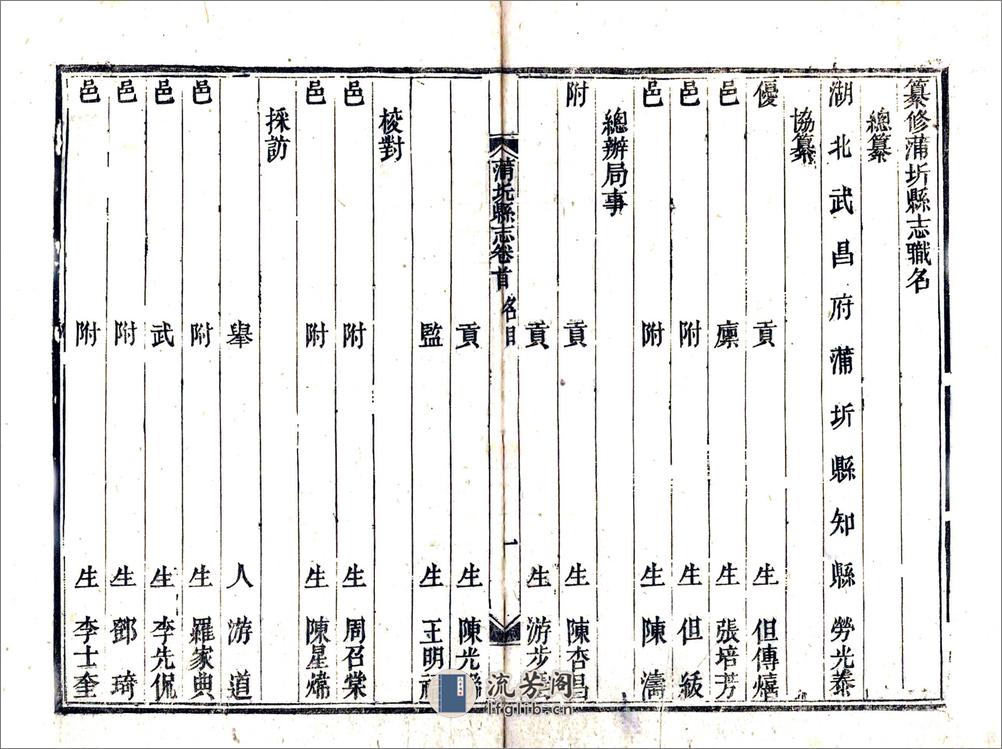 纂修蒲圻縣志職名
總纂
湖北武昌府蒲圻縣知縣勞光泰
協纂
優貢生但傳熺
邑廩生張培芳
邑附生但紱
邑附生陳濤
總辦局事
附貢生陳杏昌
貢生游步
蒲圻縣志卷首 名目 一
貢生陳光
監生王明
校對
邑附生周召棠
邑附生陳星煒
採訪
舉人游道
邑附生羅家典
邑武生李先侃
邑附生鄧琦
邑附生李士奎
流芳阁
lfglib.cn